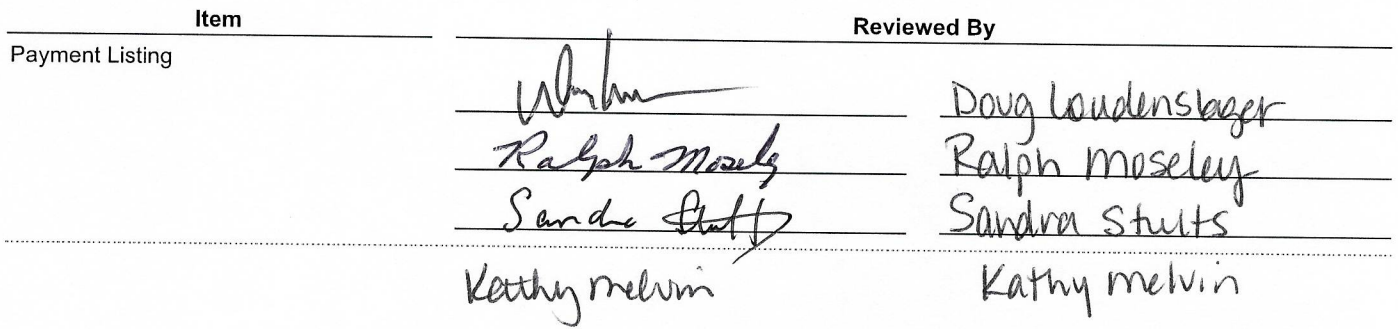 Item Reviewed By
Payment Listing
Doug Loudenslager
Ralph Mosely Ralph Moseley
Sandra Stults Sandra Stults
Kathy Melvin Kathy Melvin